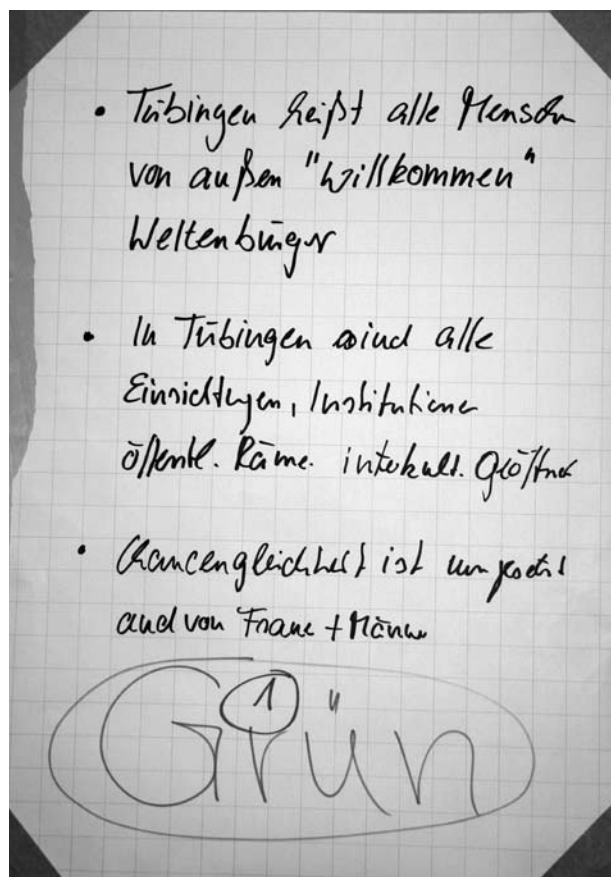 • Tübingen heißt alle Menschen
von außen "Willkommen"
Weltenbürger
• In Tübingen sind alle
Einrichtungen, Institutionen
öffentl. Räume. interkult. geöffnet
• Chancengleichheit ist umgesetzt
auch von Frauen + Männer
1
Grün